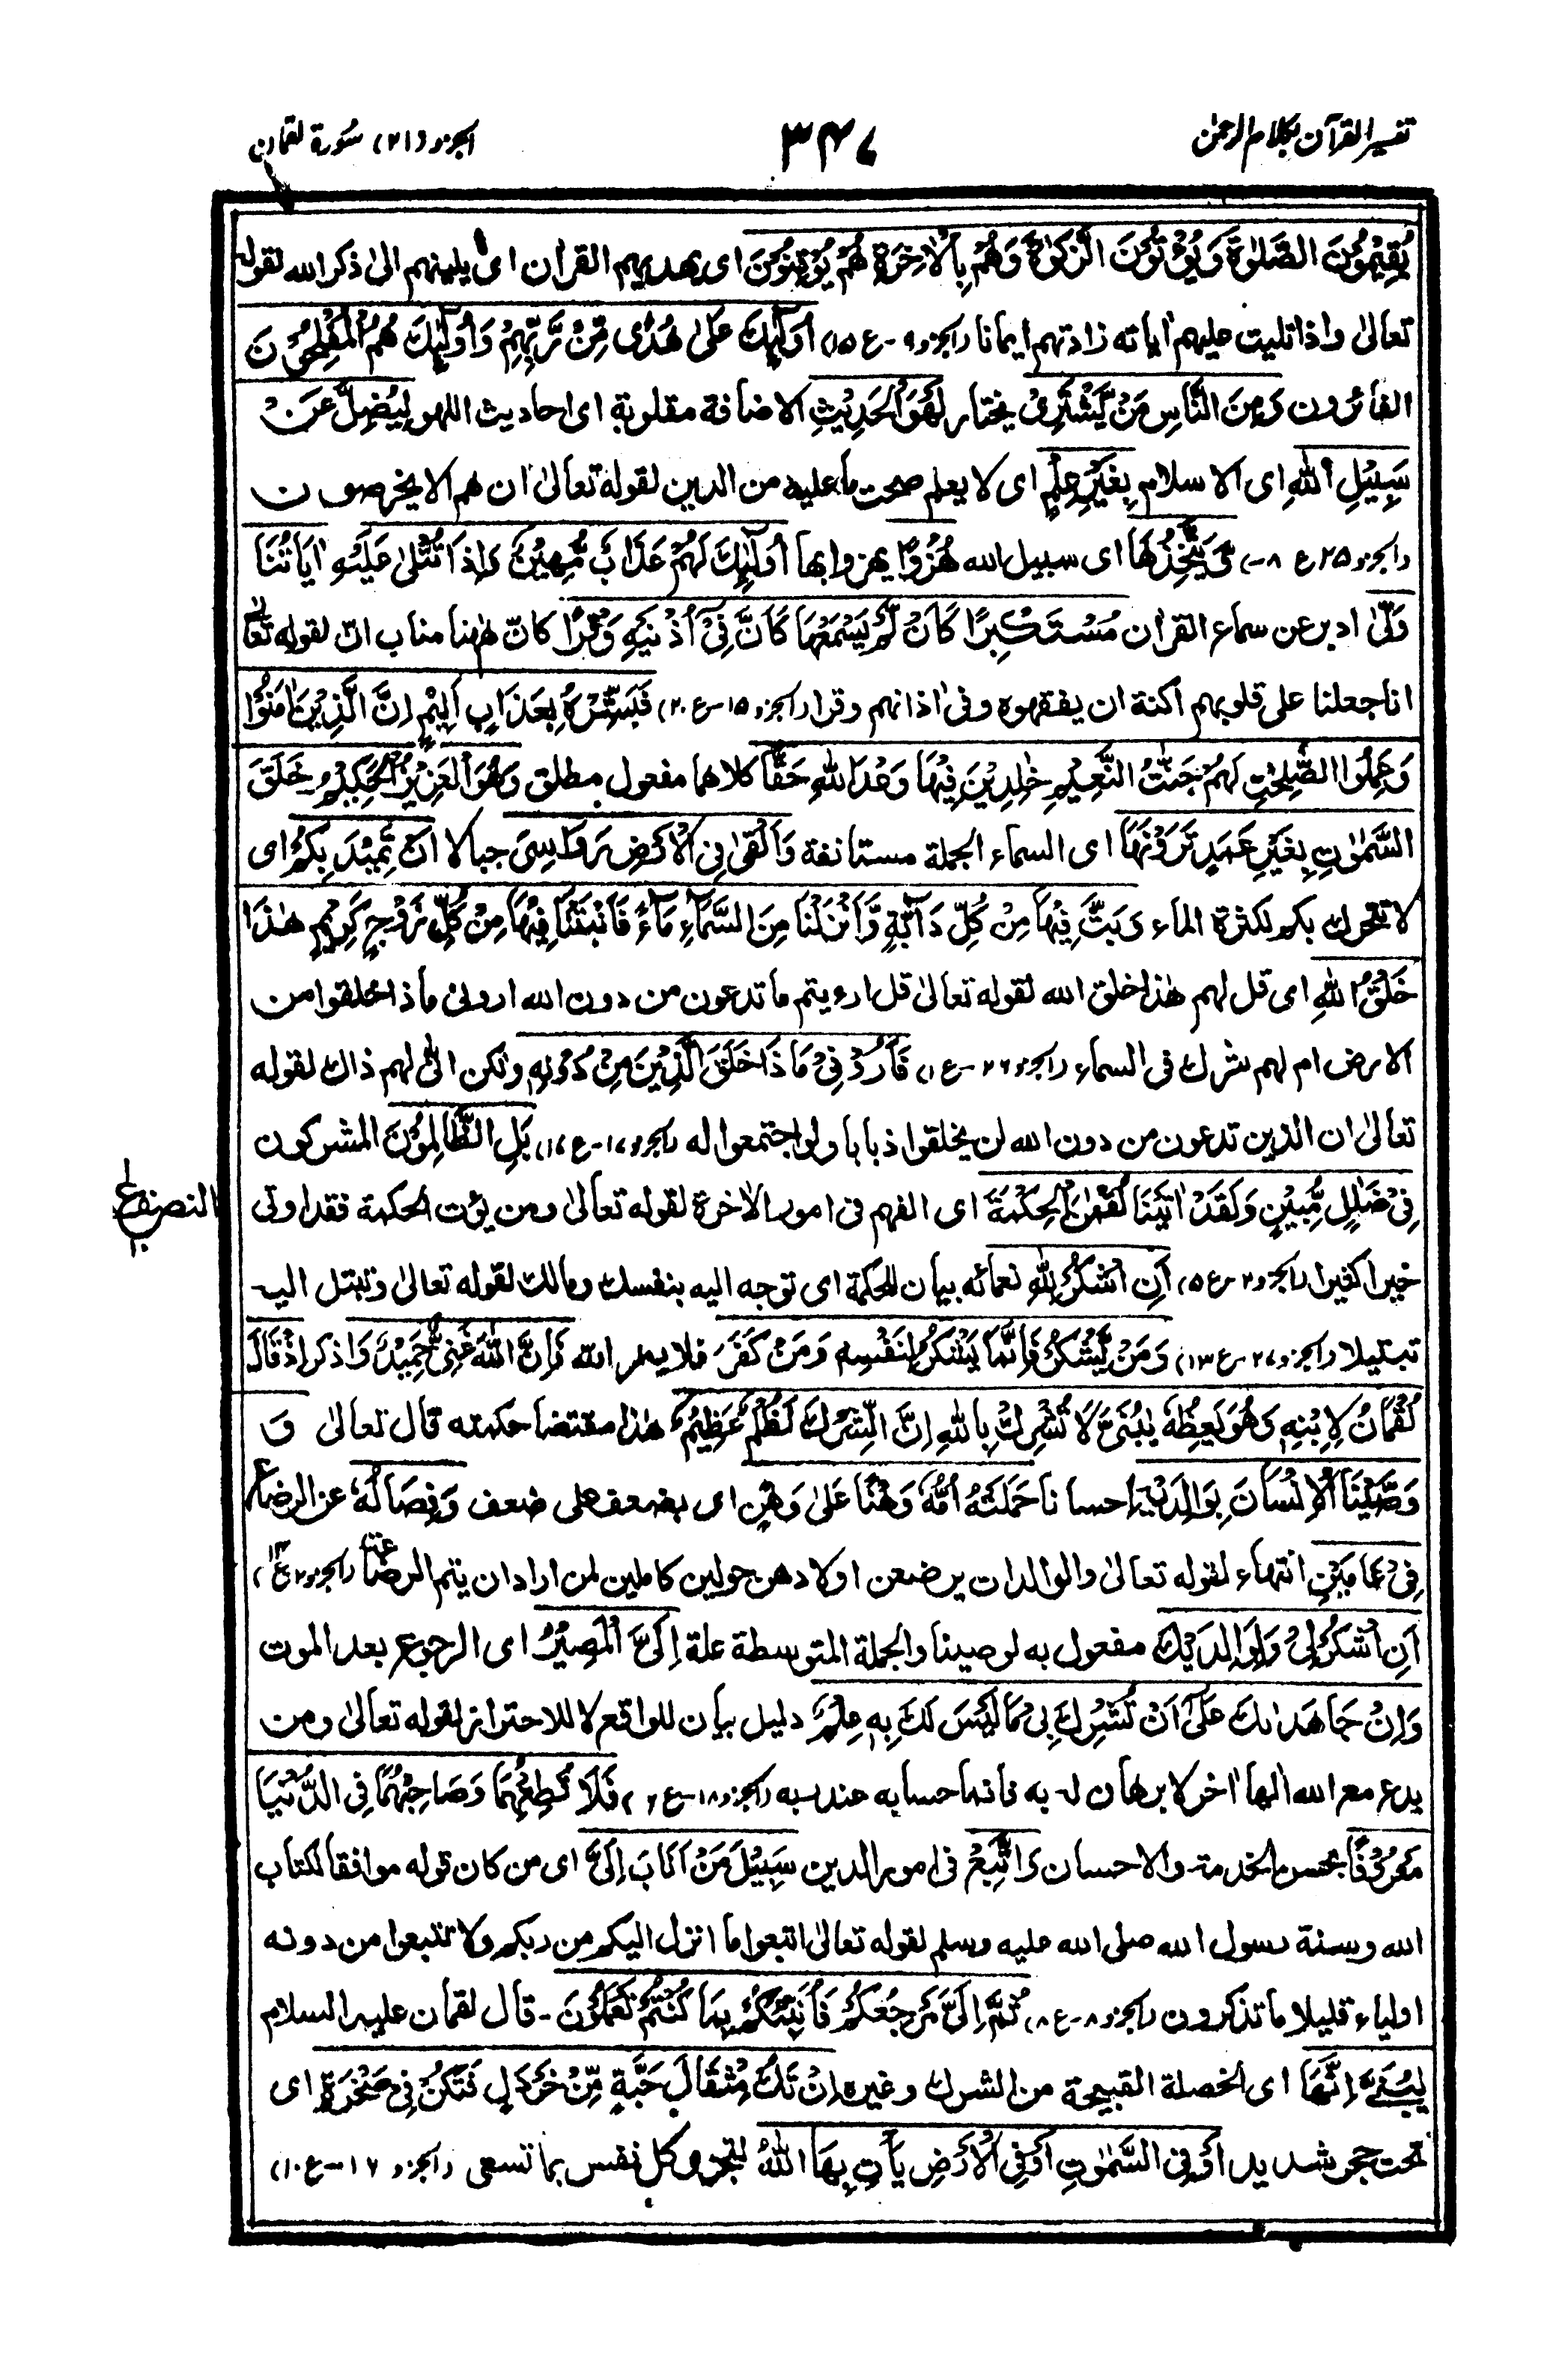 تفسیر القرآن بکلام الرحمٰن
۳۴۷
الجزو (۲۱) سُورة لقمان
يُقِيْمُوْنَ الصَّلوٰةَ وَيُؤْتُوْنَ الزَّكوٰةَ وَهُمْ بِالْاٰخِرَةِ هُمْ يُوْقِنُوْنَ اى يهديهم القراٰن اى يلينهم الىٰ ذكر الله لقوله
تعالىٰ واذا تليت عليهم اٰياته زادتهم ايمانا (الجزو ۹ - ع ۱۵) اُولٰٓئِكَ عَلىٰ هُدًى مِّنْ رَّبِّهِمْ وَاُولٰٓئِكَ هُمُ الْمُفْلِحُوْنَ
الفائزون وَمِنَ النَّاسِ مَنْ يَّشْتَرِىْ يختار لَهْوَ الْحَدِيْثِ الاضافة مقلوبة اى احاديث اللهو لِيُضِلَّ عَنْ
سَبِيْلِ اللهِ اى الاسلام بِغَيْرِ عِلْمٍ اى لا يعلم صحت ما عليه من الدين لقوله تعالىٰ ان هم الا يخرصون
(الجزو ۲۵ ع ۸ -) وَّيَتَّخِذَهَا اى سبيل الله هُزُوًا يهزوا بها اُولٰٓئِكَ لَهُمْ عَذَابٌ مُّهِيْنٌ وَاِذَا تُتْلىٰ عَلَيْهِ اٰيَاتُنَا
وَلّىٰ ادبر عن سماع القراٰن مُسْتَكْبِرًا كَاَنْ لَّمْ يَسْمَعْهَا كَاَنَّ فِىْٓ اُذْنَيْهِ وَقْرًا كانّ هٰهنا مناب انّ لقوله تعالىٰ
انا جعلنا على قلوبهم اكنة ان يفقهوه وفى اٰذانهم وقرا (الجزو ۱۵ - ع ۲۰) فَبَشِّرْهُ بِعَذَابٍ اَلِيْمٍ اِنَّ الَّذِيْنَ اٰمَنُوْا
وَعَمِلُوا الصّٰلِحٰتِ لَهُمْ جَنّٰتُ النَّعِيْمِ خٰلِدِيْنَ فِيْهَا وَعْدَ اللهِ حَقًّا كلاهما مفعول مطلق وَهُوَ الْعَزِيْزُ الْحَكِيْمُ خَلَقَ
السَّمٰوٰتِ بِغَيْرِ عَمَدٍ تَرَوْنَهَا اى السماء الجملة مستانفة وَاَلْقىٰ فِى الْاَرْضِ رَوَاسِىَ جبالا اَنْ تَمِيْدَ بِكُمْ اى
لا تتحرك بكم لكثرة الماء وَبَثَّ فِيْهَا مِنْ كُلِّ دَآبَّةٍ وَّاَنْزَلْنَا مِنَ السَّمَآءِ مَآءً فَاَنْبَتْنَا فِيْهَا مِنْ كُلِّ زَوْجٍ كَرِيْمٍ هٰذَا
خَلْقُ اللهِ اى قل لهم هٰذا خلق الله لقوله تعالىٰ قل ارءيتم ما تدعون من دون الله ارونى ماذا خلقوا من
الارض ام لهم شرك فى السماء (الجزو ۲۶ - ع ۱) فَاَرُوْنِىْ مَاذَا خَلَقَ الَّذِيْنَ مِنْ دُوْنِهٖ ولكن انىٰ لهم ذاك لقوله
تعالىٰ ان الذين تدعون من دون الله لن يخلقوا ذبابا ولو اجتمعوا له (الجزو ۱۷ - ع ۱۷) بَلِ الظَّالِمُوْنَ المشركون
فِىْ ضَلٰلٍ مُّبِيْنٍ وَلَقَدْ اٰتَيْنَا لُقْمٰنَ الْحِكْمَةَ اى الفهم فى امور الاٰخرة لقوله تعالىٰ ومن يؤت الحكمة فقد اوتى
النصف ع ۱۰
خيرا كثيرا (الجزو ۳ - ع ۵) اَنِ اشْكُرْ لِلّٰهِ نعمائه بيان للحكمة اى توجه اليه بنفسك ومالك لقوله تعالىٰ وتبتل اليه
تبتيلا (الجزو ۲۹ - ع ۱۳) وَمَنْ يَّشْكُرْ فَاِنَّمَا يَشْكُرُ لِنَفْسِهٖ وَمَنْ كَفَرَ فلا يضر الله فَاِنَّ اللهَ غَنِىٌّ حَمِيْدٌ وَاذكر اِذْ قَالَ
لُقْمَانُ لِابْنِهٖ وَهُوَ يَعِظُهٗ يٰبُنَىَّ لَا تُشْرِكْ بِاللهِ اِنَّ الشِّرْكَ لَظُلْمٌ عَظِيْمٌ هٰذا مقتضا حكمته قال تعالىٰ وَ
وَصَّيْنَا الْاِنْسَانَ بِوَالِدَيْهِ احسانا حَمَلَتْهُ اُمُّهٗ وَهْنًا عَلىٰ وَهْنٍ اى بضعف على ضعف وَفِصَالُهٗ عن الرضاع
فِىْ عَامَيْنِ انتهاء لقوله تعالىٰ والوالدات يرضعن اولادهن حولين كاملين لمن اراد ان يتم الرضاعة (الجزو ۲ ع ۱۴)
اَنِ اشْكُرْ لِىْ وَلِوَالِدَيْكَ مفعول به لوصينا والجملة المتوسطة علة اِلَىَّ الْمَصِيْرُ اى الرجوع بعد الموت
وَاِنْ جَاهَدَاكَ عَلىٰٓ اَنْ تُشْرِكَ بِىْ مَا لَيْسَ لَكَ بِهٖ عِلْمٌ دليل بيان للواقع لا للاحتراز لقوله تعالىٰ ومن
يدع مع الله الٰها اٰخر لا برهان له به فانما حسابه عند ربه (الجزو ۱۸ - ع ۶) فَلَا تُطِعْهُمَا وَصَاحِبْهُمَا فِى الدُّنْيَا
مَعْرُوْفًا بحسن الخدمة والاحسان وَاتَّبِعْ فى امور الدين سَبِيْلَ مَنْ اَنَابَ اِلَىَّ اى من كان قوله موافقا لكتاب
الله وسنة رسول الله صلى الله عليه وسلم لقوله تعالىٰ اتبعوا ما انزل اليكم من ربكم ولا تتبعوا من دونه
اولياء قليلا ما تذكرون (الجزو ۸ - ع ۸) ثُمَّ اِلَىَّ مَرْجِعُكُمْ فَاُنَبِّئُكُمْ بِمَا كُنْتُمْ تَعْمَلُوْنَ - قال لقمان عليه السلام
يٰبُنَىَّ اِنَّهَا اى الخصلة القبيحة من الشرك وغيره اِنْ تَكُ مِثْقَالَ حَبَّةٍ مِّنْ خَرْدَلٍ فَتَكُنْ فِىْ صَخْرَةٍ اى
تحت حجر شديد اَوْ فِى السَّمٰوٰتِ اَوْ فِى الْاَرْضِ يَاْتِ بِهَا اللهُ لتجزى كل نفس بما تسعى (الجزو ۱۶ - ع ۱۰)